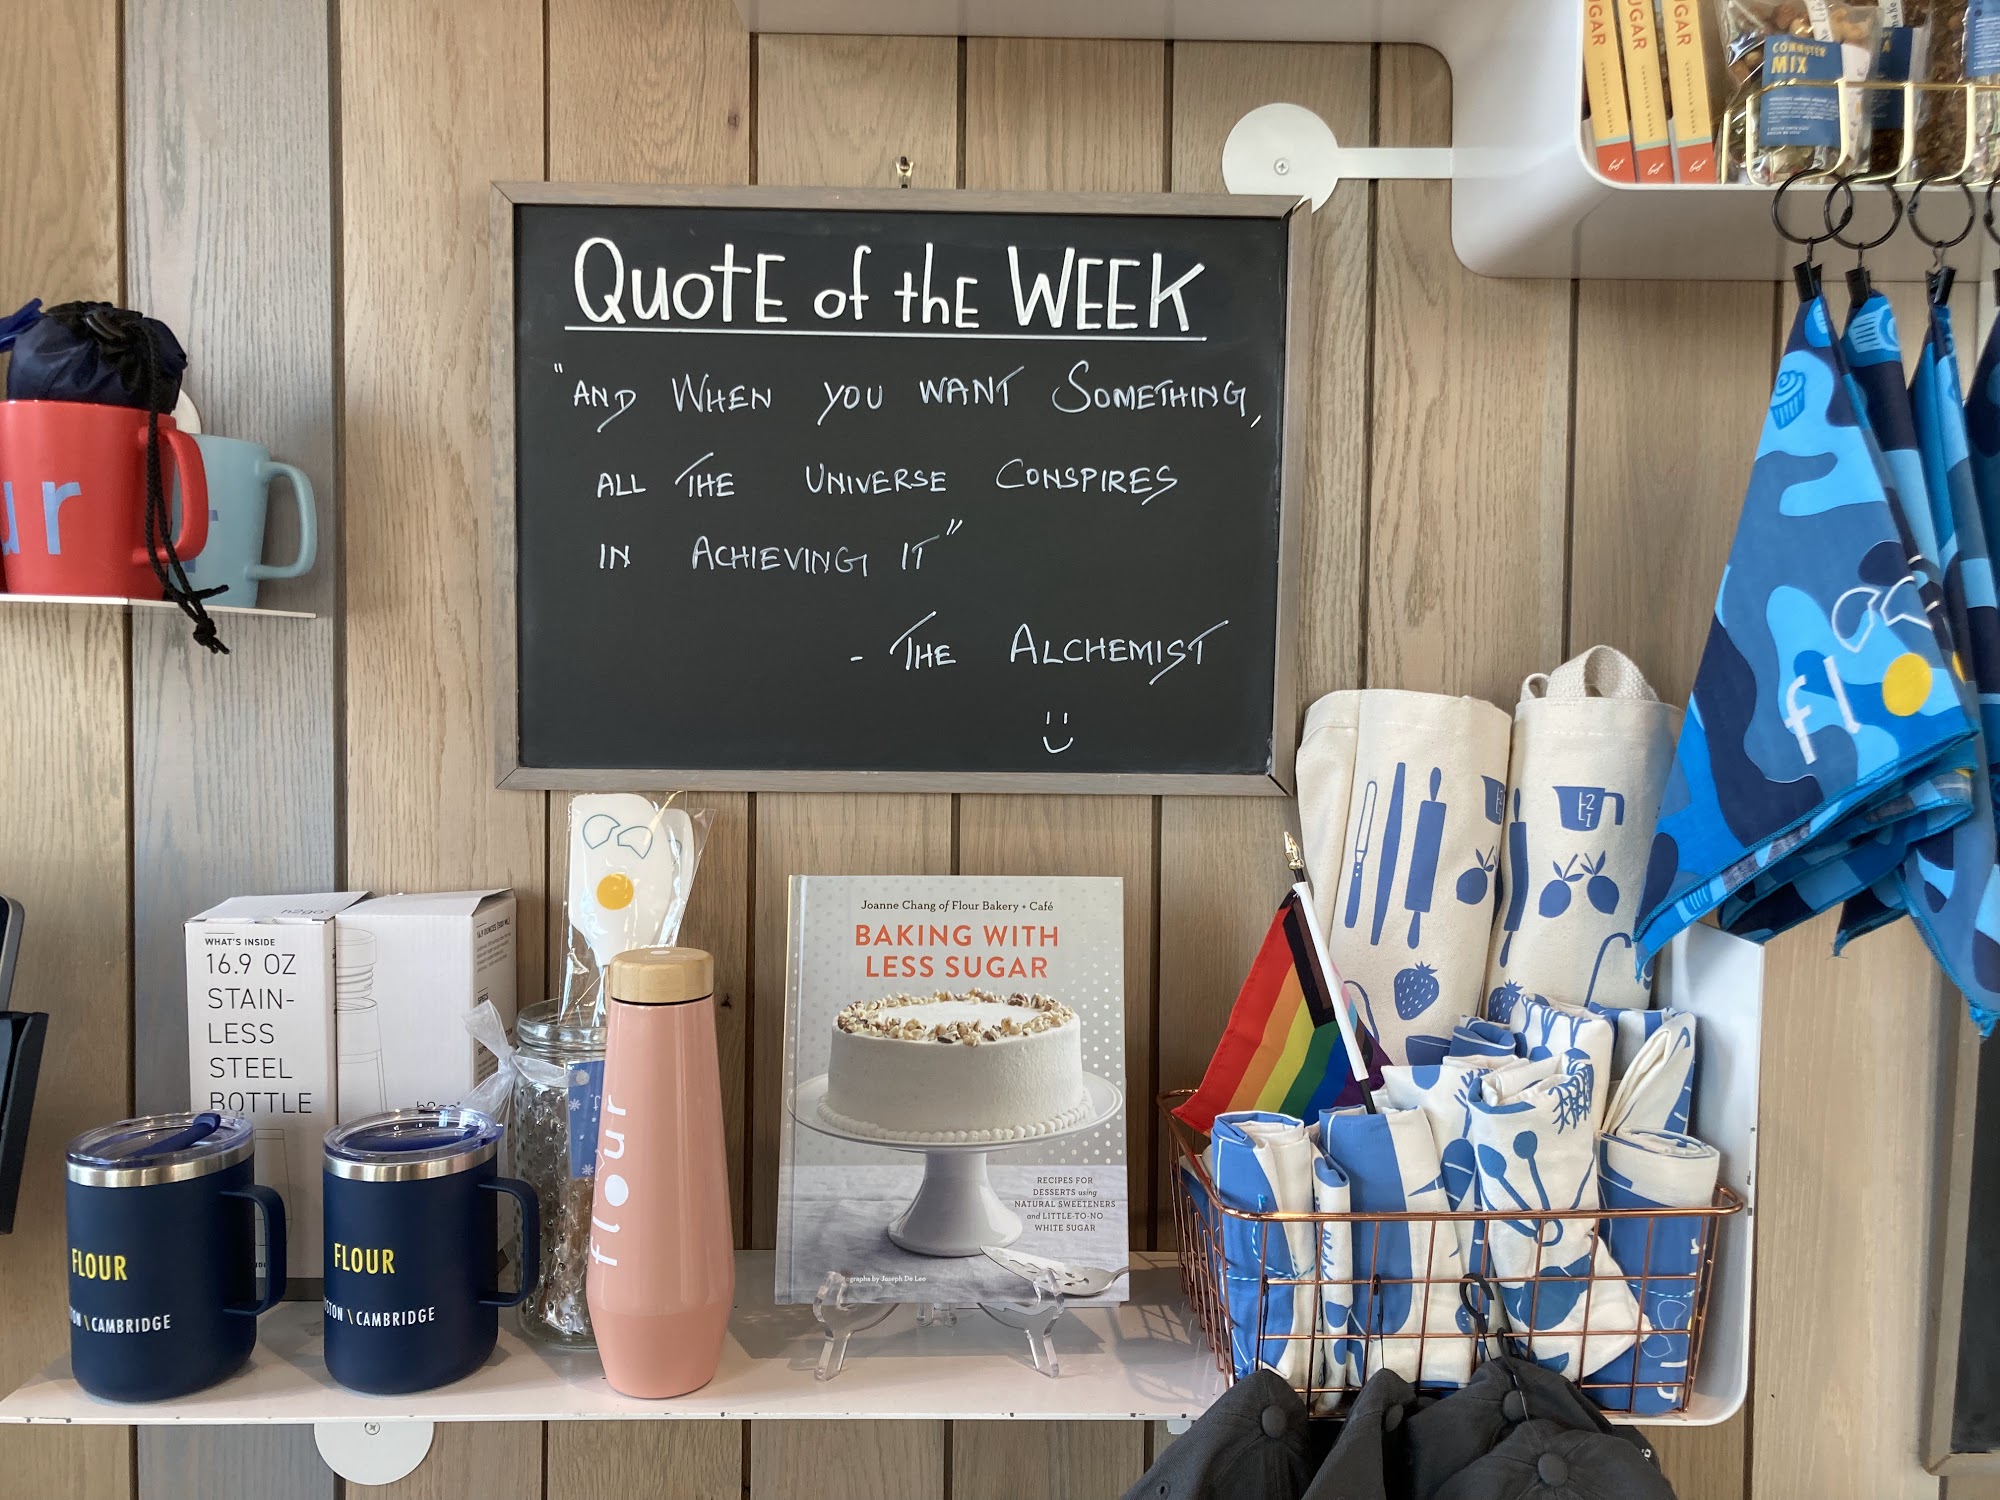 QUOTE of the WEEK
"AND WHEN YOU WANT SOMETHING,
ALL THE UNIVERSE CONSPIRES
IN ACHIEVING IT"
- THE ALCHEMIST
UGAR
UGAR
UGAR
COMMUTER
MIX
ur
flo
WHAT'S INSIDE
16.9 OZ
STAIN-
LESS
STEEL
BOTTLE
h2go
h2go
FLOUR
ON \ CAMBRIDGE
FLOUR
STON \ CAMBRIDGE
flour
Joanne Chang of Flour Bakery + Café
BAKING WITH
LESS SUGAR
RECIPES FOR
DESSERTS using
NATURAL SWEETENERS
and LITTLE-TO-NO
WHITE SUGAR
ographs by Joseph De Leo